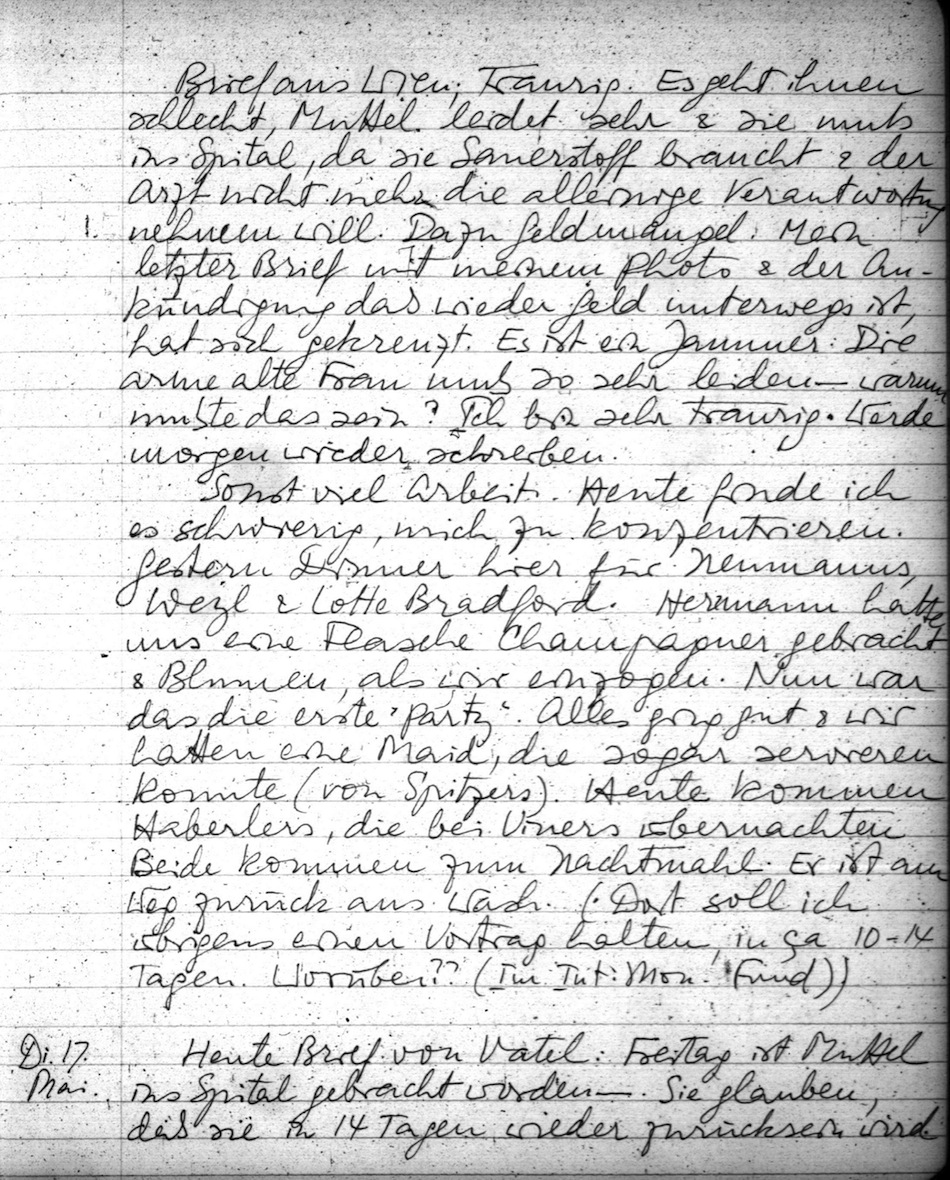 Brief aus Wien; Traurig. Es geht ihnen
schlecht, Muttel. leidet sehr & sie muß
ins Spital, da sie Sauerstoff braucht & der
Arzt nicht mehr die alleinige Verantwortung
nehmen will. Dazu Geldmangel. Mein
letzter Brief mit meinem Photo & der An-
kündigung daß wieder Geld unterwegs ist,
hat sich gekreuzt. Es ist ein Jammer. Die
arme alte Frau muß so sehr leiden – warum
mußte das sein? Ich bin sehr traurig. Werde
morgen wieder schreiben.
Sonst viel Arbeit. Heute finde ich
es schwierig, mich zu konzentrieren.
Gestern Dinner hier für Neumanns,
Weyl & Lotte Bradford. Hermann hatte
uns eine Flasche Champagner gebracht
& Blumen, als wir einzogen. Nun war
das die erste "party". Alles ging gut & wir
hatten eine Maid, die sogar servieren
konnte (von Spitzers). Heute kommen
Haberlers, die bei Viners übernachten
Beide kommen zum Nachtmahl. Er ist am
Weg zurück aus Wash. (Dort soll ich
übrigens einen Vortrag halten, in ca 10-14
Tagen. Worüber?? (Im Int. Mon. Fund))
Di. 17.
Mai.
Heute Brief von Vatel. Freitag ist Muttel
ins Spital gebracht worden –. Sie glauben,
daß sie in 14 Tagen wieder zurück sein wird